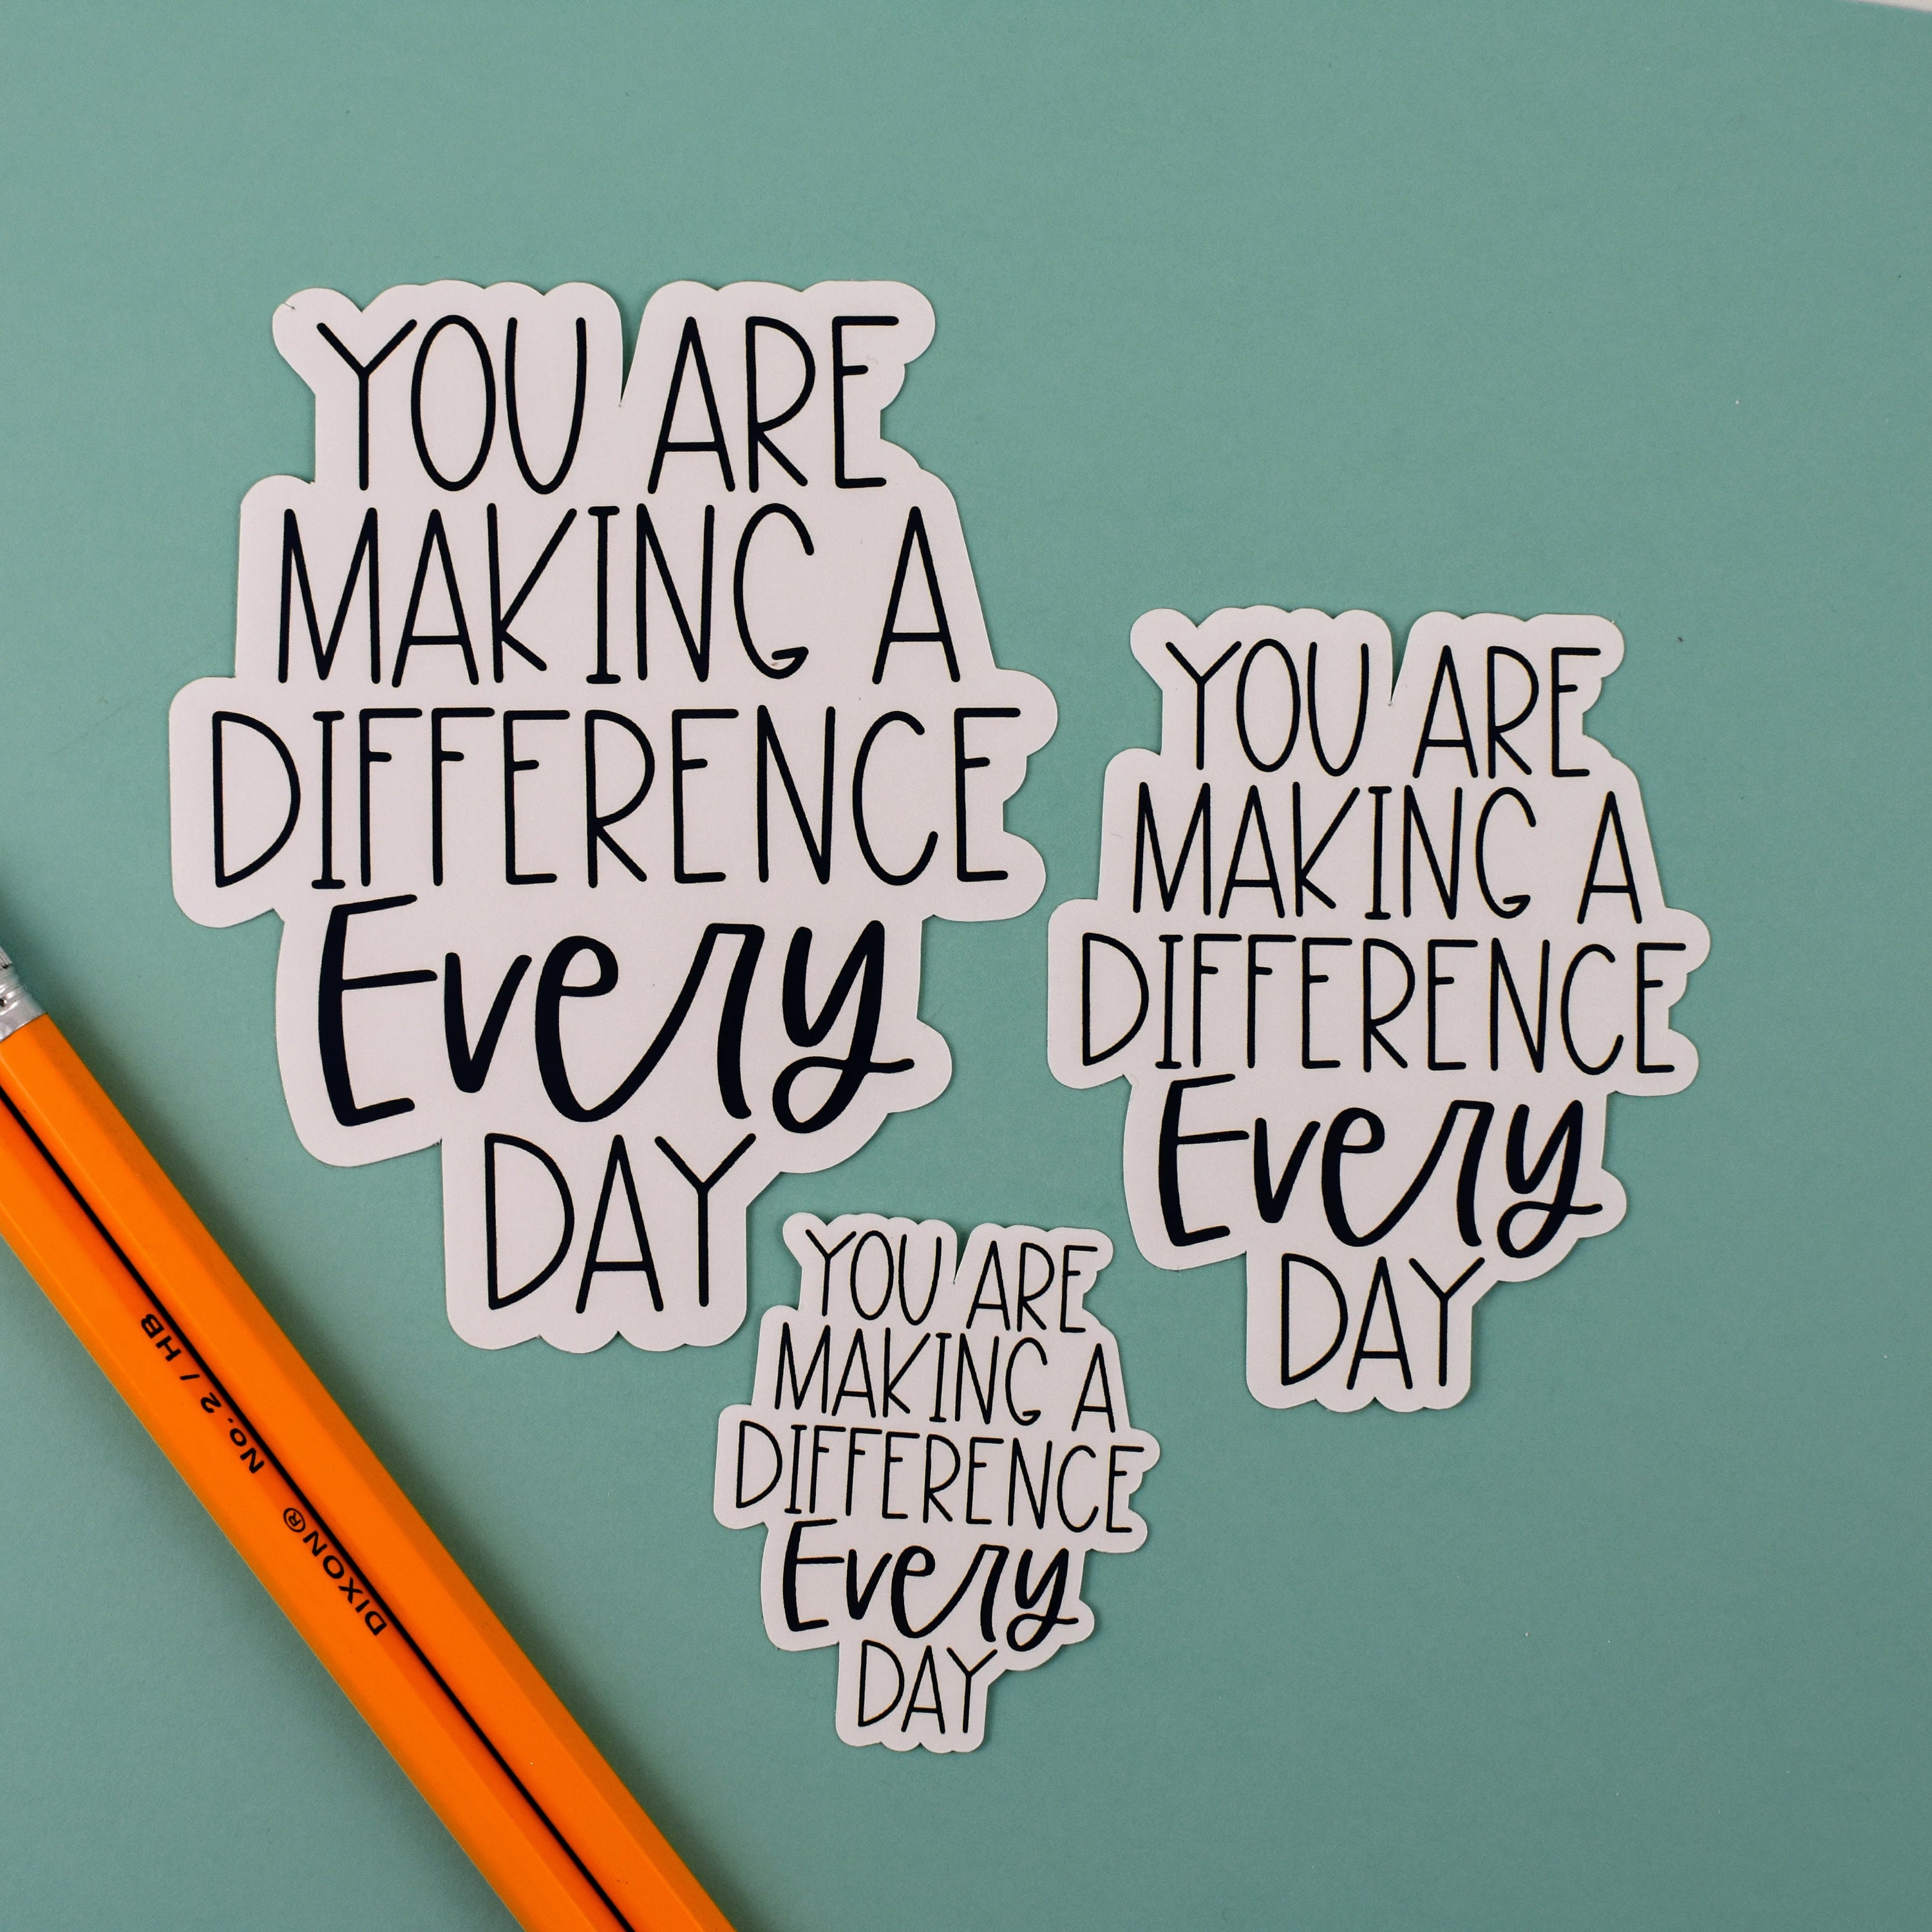 YOU ARE
MAKING A
DIFFERENCE
Every
DAY
YOU ARE
MAKING A
DIFFERENCE
Every
DAY
YOU ARE
MAKING A
DIFFERENCE
Every
DAY
DIXON® No. 2 / HB